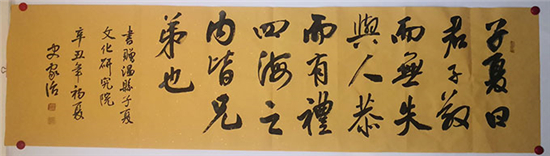 子夏曰
君子敬
而無失
與人恭
而有禮
四海之
內皆兄
弟也
書贈溫縣子夏
文化研究院
辛丑年初夏
史家治